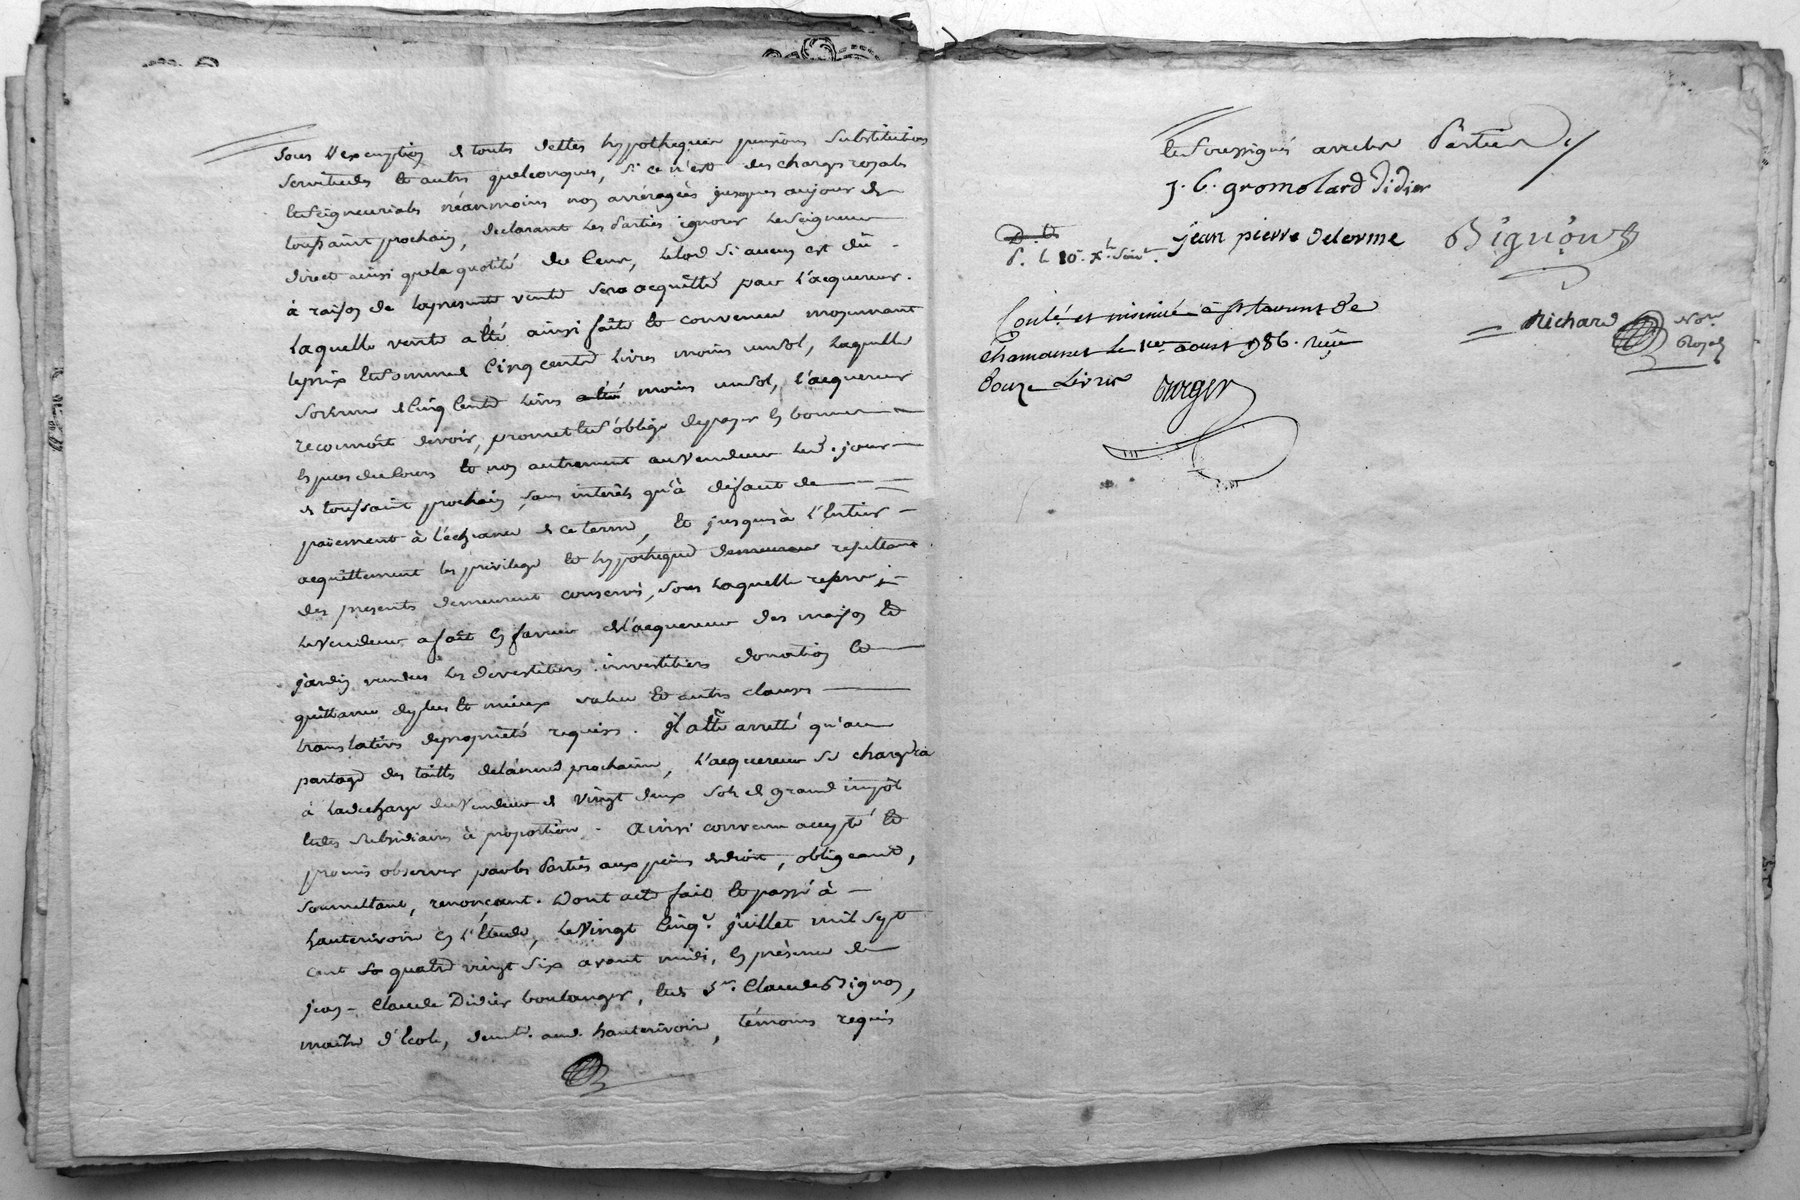 sous l'exemption de touts dettes hypotheques pensions substitutions
servitudes et autres quelconques, si ce n'est des charges royals
et seigneurials néanmoins non arréragées jusques au jour de
toussaint prochain, declarant les parties ignorer le seigneur
direct ainsi que la quotité du cens, le lod si aucun est dû
à raison de la presente vente sera acquitté par l'acquereur.
Laquelle vente a été ainsi faite et convenue moyennant
le prix et somme de cinq cents livres moins un sol, laquelle
somme de cinq cents livres moins un sol, l'acquereur
reconnoit devoir, promet et s'oblige de payer en bonnes
especes de cours et non autrement au vendeur led. jour
de toussaint prochain, sans interêts qu'à défaut de
paiement à l'échéance de ce terme, et jusqu'à l'entier
acquittement les privilege et hypotheque resultant
des presentes demeurent conservés, sous laquelle reserve
le vendeur a fait en faveur de l'acquereur des maison et
jardin vendus les devestitures investitures donation et
quittance de plus et mieux value et autres clauses
translatives de propriété requises. Il a été arretté qu'au
partage des tailles de l'année prochaine, l'acquereur se chargera
à la decharge du vendeur de vingt deux sols de grand impôt
et des subsidiaires à proportion. Ainsi convenu accepté et
promis observer par les parties aux peines de droit, obligeant,
soumettant, renonçant. Dont acte fait et passé à
hauterivoire en l'étude, le vingt cinq juillet mil sept
cent quatre vingt six avant midi, en présence de
jean-Claude Didier boulanger, et de sr. Claude Bignon,
maître d'école, demt. aud. hauterivoire, témoins requis
et soussignés avec les parties
J. C. gromolard Didier
jean pierre delorme Bignon
Richard Nore Royal
Contrôlé et insinué à St laurent de
Chamousset le 1er aoust 1786. reçu
douze livres